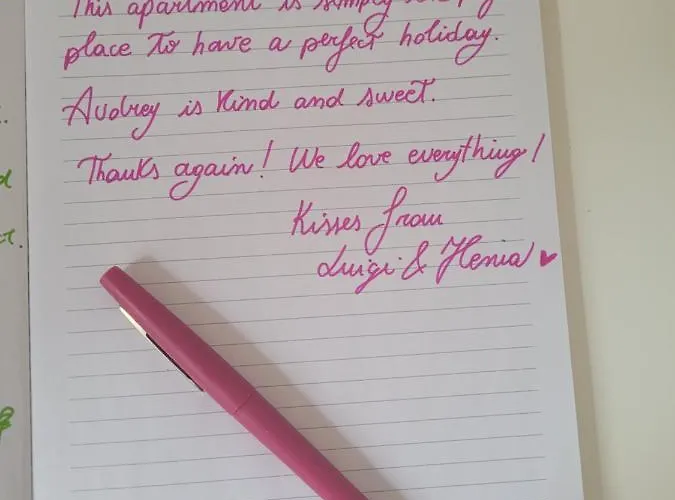 This apartment is simply
place to have a perfect holiday.
Audrey is kind and sweet.
Thanks again! We love everything!
Kisses from
Luigi & Henia ♥